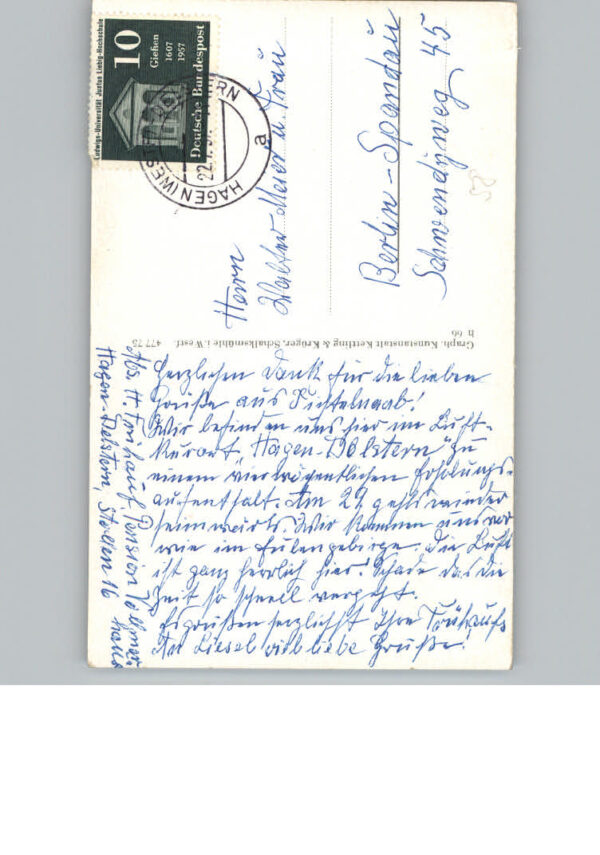 Herzlichen Dank für die lieben
Grüße aus Fichtelnaab!
Wir befinden uns hier im Luft-
kurort „Hagen-Delstern“ zu
einem vierwöchentlichen Erholungs-
aufenthalt. Am 29. gehts wieder
heimwärts. Wir kommen uns vor
wie im Eulengebirge. Die Luft
ist ganz herrlich hier! Schade das die
Zeit so schnell vergeht.
Es grüßen herzlichst Ihre Frühaufs
An Liesel viel liebe Grüße!
Abs. H. Frühauf Pension
haus
Hagen-Delstern, Stollen 16
Graph. Kunstanstalt Kettling & Krüger, Schalksmühle i. Westf. 477 75
h 66
Herrn
Walter Meier u. Frau
Berlin-Spandau
Schwendyweg 45
25
Ludwigs-Universität Justus Liebig-Hochschule
10
Gießen
1607
1957
Deutsche Bundespost
HAGEN (WESTF)
22
a